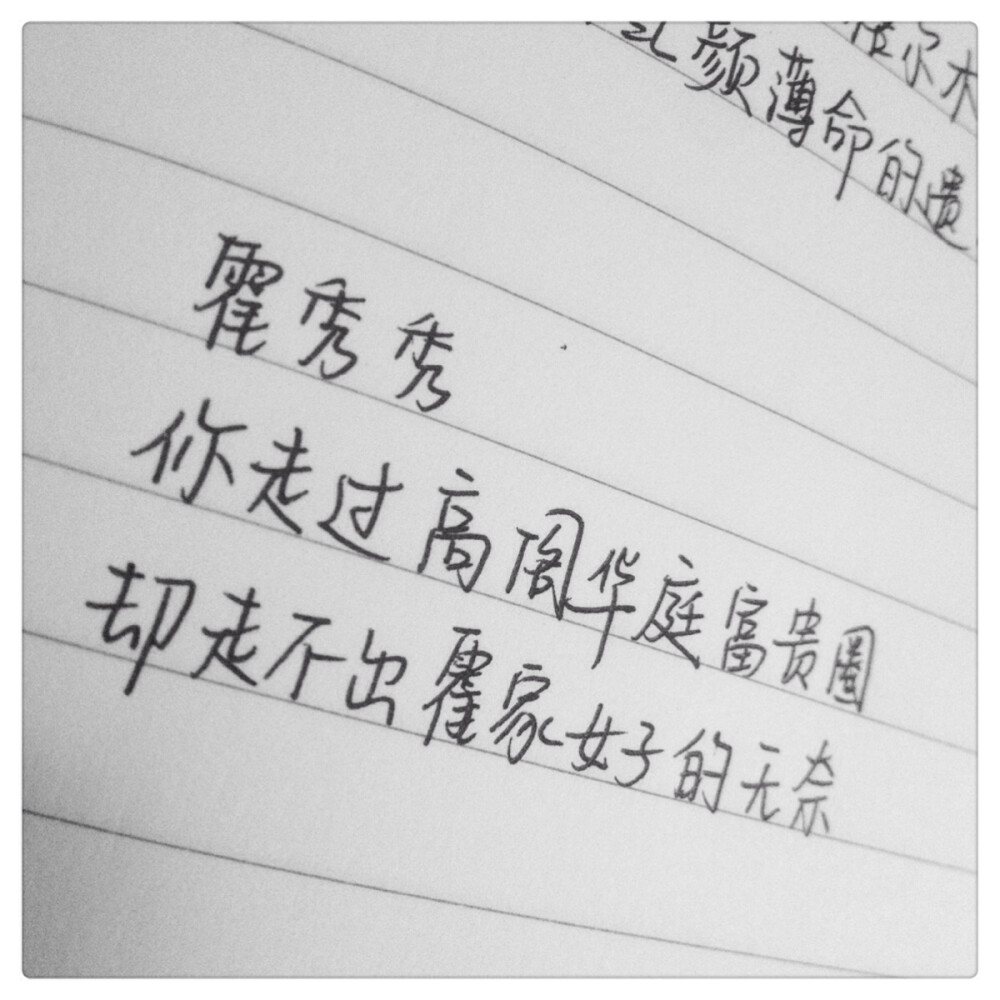 格尔木
红颜薄命的遗
霍秀秀
你走过高阁华庭富贵圈
却走不出霍家女子的无奈